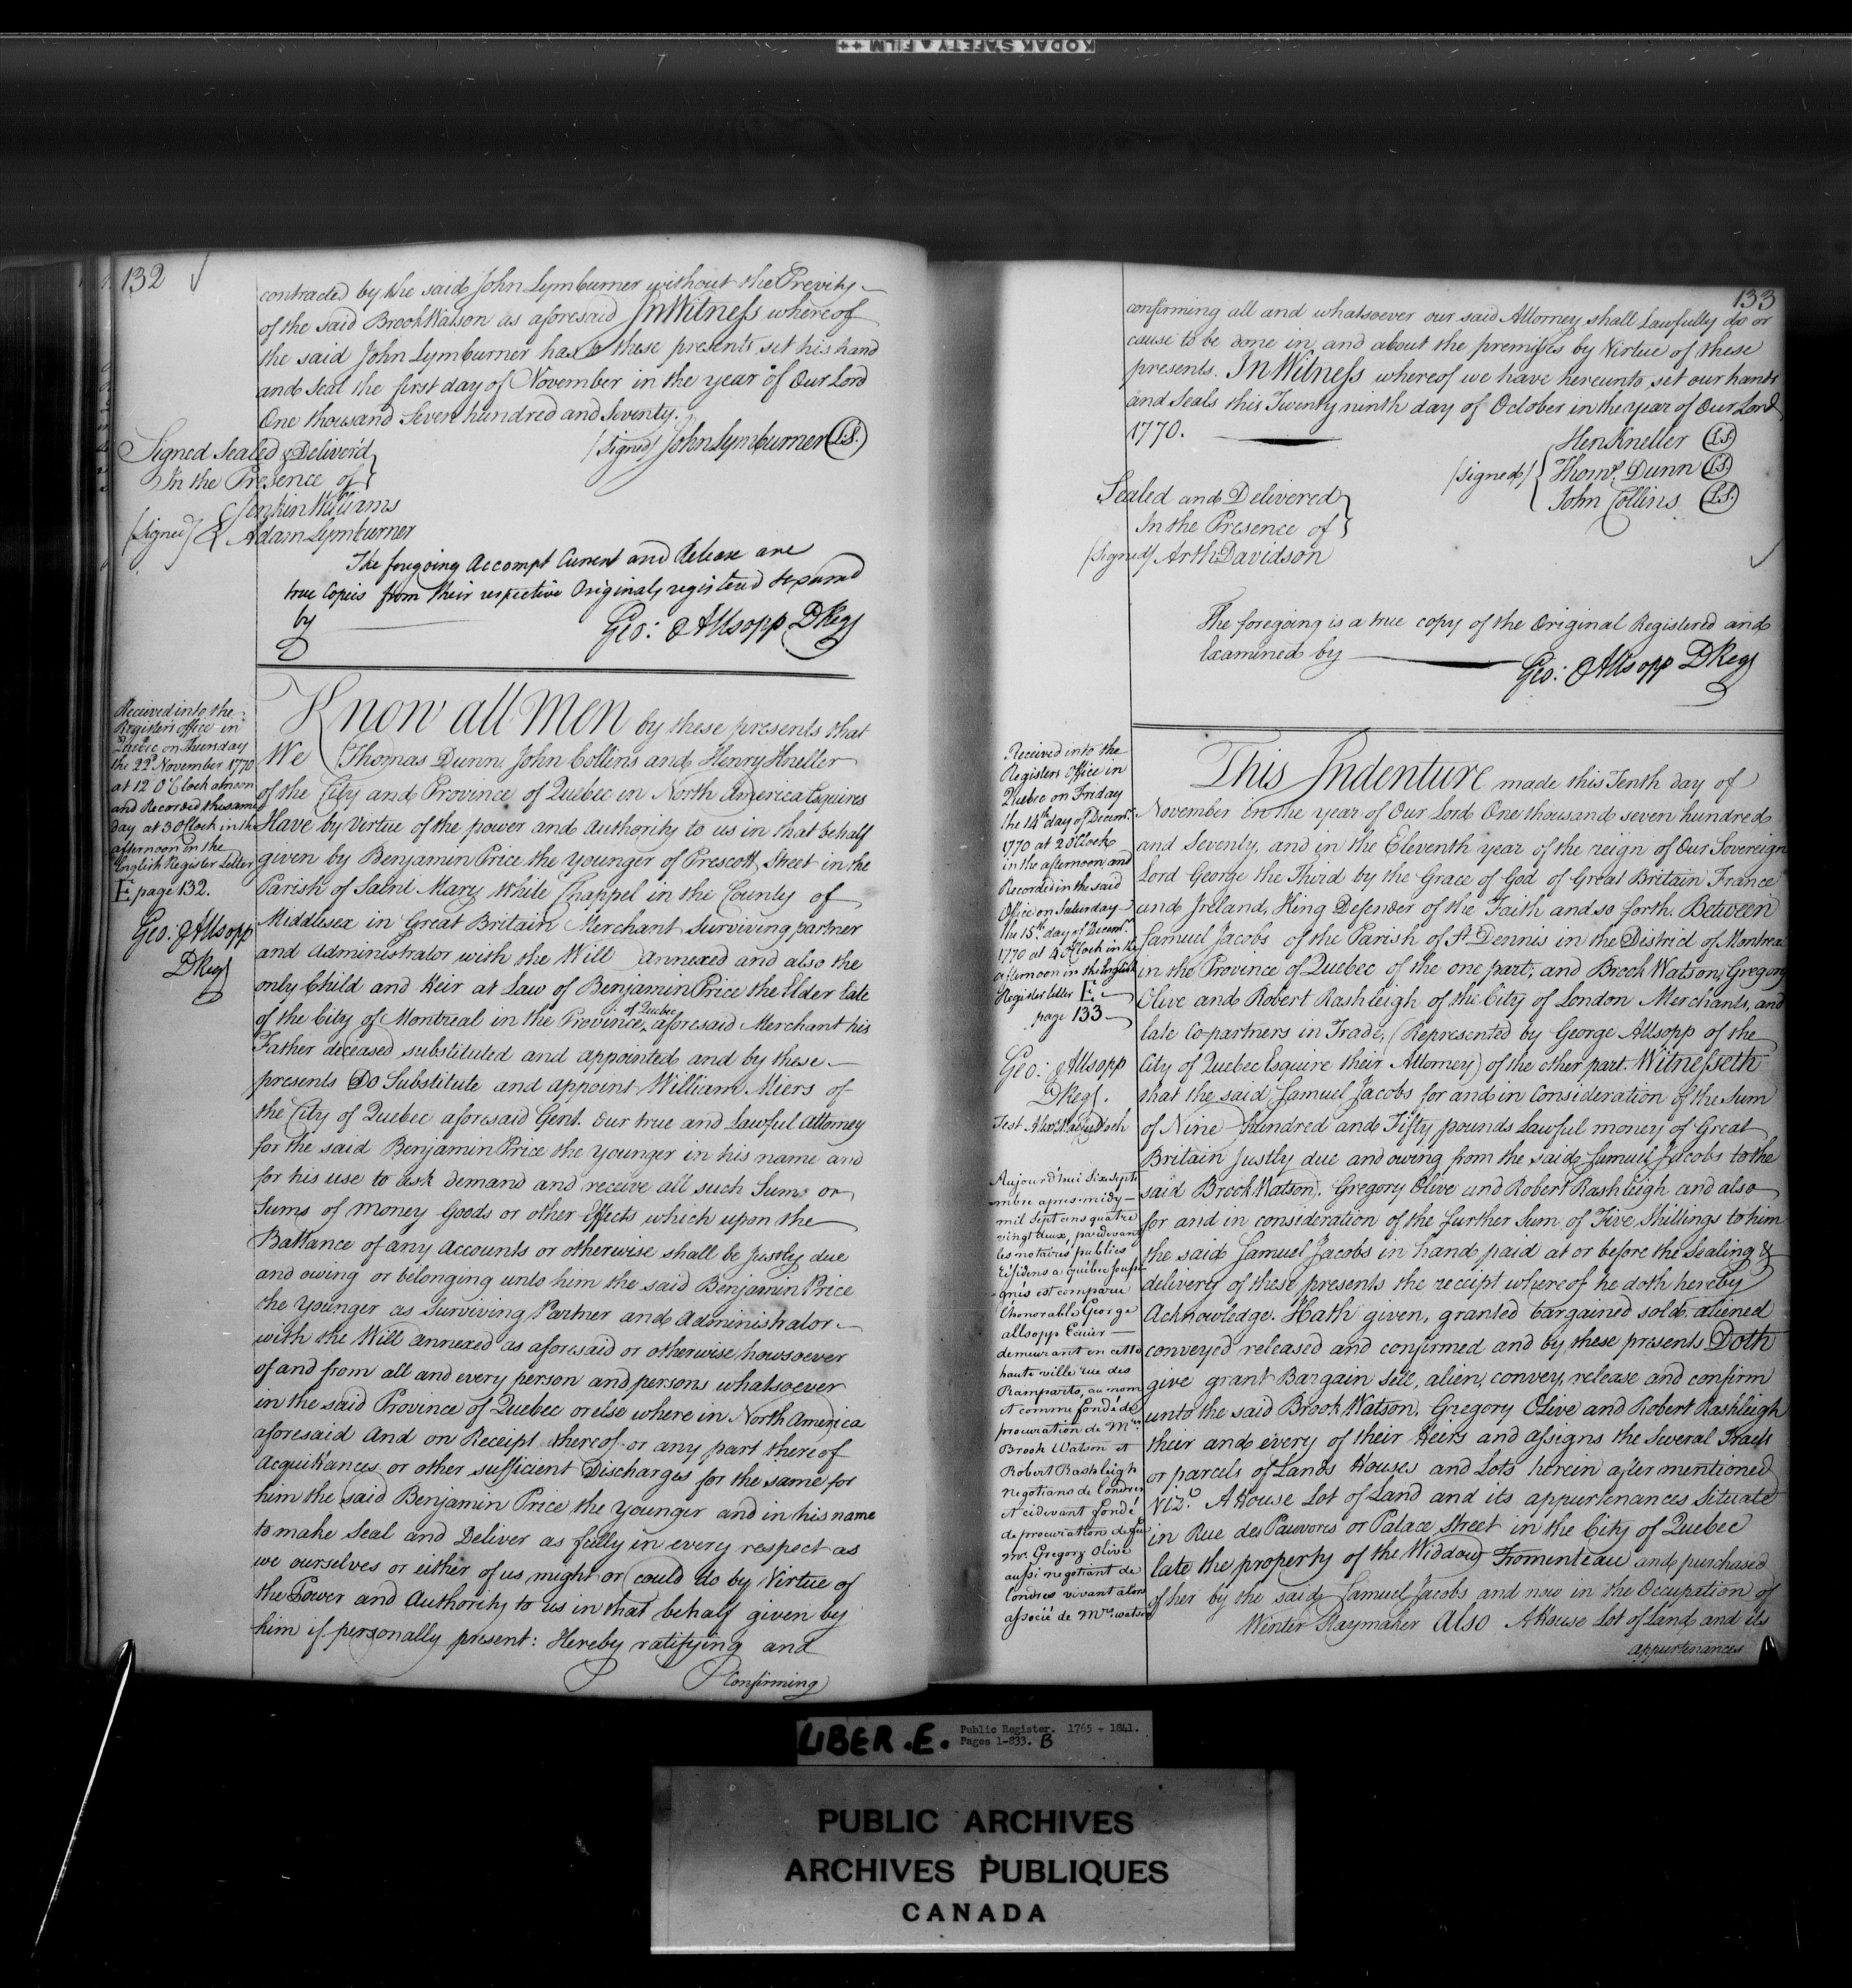 KODAK SAFETY FILM ++
132
contracted by the said John Lymburner without the Previty
of the said Brook Watson as aforesaid In Witness whereof
the said John Lymburner has to these presents set his hand
and Seal the first day of November in the year of Our Lord
One thousand Seven hundred and Seventy.
(Signed) John Lymburner (L.S.)
Signed Sealed & Deliver'd
In the Presence of
Jenkin Williams
(Signed) Adam Lymburner
The foregoing Accompt Current and Release are
true Copies from their respective Originals registered & examd
by Geo: Allsopp DReg
Received into the
Registers office in
Quebec on Thursday
the 22d November 1770
at 12 O'Clock at noon
and Recorded the same
day at 3 oClock in the
afternoon in the
English Register Letter
E page 132.
Geo: Allsopp
DReg
Know all Men by these presents that
We Thomas Dunn, John Collins and Henry Kneller
of the City and Province of Quebec in North America Esquires
Have by Virtue of the power and Authority to us in that behalf
given by Benjamin Price the Younger of Prescott Street in the
Parish of Saint Mary White Chappel in the County of
Middlesex in Great Britain Merchant Surviving partner
and Administrator with the Will annexed and also the
only Child and Heir at Law of Benjamin Price the Elder late
of the City of Montreal in the Province of Quebec aforesaid Merchant his
Father deceased substituted and appointed and by these
presents Do Substitute and appoint William Miers of
the City of Quebec aforesaid Gent. our true and Lawful Attorney
for the said Benjamin Price the Younger in his name and
for his use to ask demand and receive all such Sum or
Sums of Money Goods or other Effects which upon the
Ballance of any Accounts or otherwise shall be justly due
and owing or belonging unto him the said Benjamin Price
the Younger as Surviving Partner and Administrator
with the Will annexed as aforesaid or otherwise howsoever
of and from all and every person and persons whatsoever
in the said Province of Quebec or else where in North America
aforesaid And on Receipt thereof or any part thereof
Acquittances or other sufficient Discharges for the same for
him the said Benjamin Price the Younger and in his name
to make Seal and Deliver as fully in every respect as
we ourselves or either of us might or could do by Virtue of
the Power and Authority to us in that behalf given by
him if personally present: Hereby ratifying and
Confirming
133
confirming all and whatsoever our said Attorney shall Lawfully do or
cause to be done in, and about the premises by Virtue of these
presents. In Witness whereof we have hereunto set our hands
and Seals this Twenty ninth day of October in the Year of Our Lord
1770.
Hen Kneller (L.S.)
(Signed) Thoms. Dunn (L.S.)
John Collins (L.S.)
Sealed and Delivered
In the Presence of
(Signed) Arth: Davidson
The foregoing is a true copy of the Original Registered and
Examined by Geo: Allsopp DReg
Received into the
Registers Office in
Quebec on Friday
the 14th day of Decemr.
1770 at 2 oClock
in the afternoon and
Recorded in the said
Office on Saturday
the 15th day of Decemr.
1770 at 4 oClock in the
afternoon in the English
Register letter E
page 133
Geo: Allsopp
DReg.
Test
Aujourd'hui Six Septe
mbre apres midy
mil Sept cens quatre
vingt deux, pardevant
les notaires publics
résidens a québec souss
ignés est comparu
l'honorable George
allsopp Ecuier
demeurant en cette
haute ville rue des
Ramparts, au nom
et comme fondé de
procuration de Mrs.
Brook Watson et
Robert Rashleigh
negotians de Londres
et cidevant fondé
de procuration de feu
mr. Gregory Olive
aussi negotiant de
Londres vivant alors
associé de Mrs. watson
This Indenture made this Tenth day of
November in the year of Our Lord One thousand seven hundred
and Seventy, and in the Eleventh year of the reign of Our Sovereign
Lord George the Third by the Grace of God of Great Britain France
and Ireland, King Defender of the Faith and so forth. Between
Samuel Jacobs of the Parish of St. Dennis in the District of Montreal
in the Province of Quebec of the one part; and Brook Watson, Gregory
Olive and Robert Rashleigh of the City of London Merchants, and
late Co-partners in Trade, (Represented by George Allsopp of the
City of Quebec Esquire their Attorney) of the other part. Witnesseth
that the said Samuel Jacobs for and in Consideration of the Sum
of Nine Hundred and Fifty pounds Lawful money of Great
Britain Justly due and owing from the said Samuel Jacobs to the
said Brook Watson, Gregory Olive and Robert Rashleigh and also
for and in consideration of the further Sum of Five Shillings to him
the said Samuel Jacobs in hand paid at or before the Sealing &
delivery of these presents the receipt whereof he doth hereby
Acknowledge. Hath given, granted bargained sold aliened
conveyed released and confirmed and by these presents Doth
give grant Bargain sell, alien, convey, release and confirm
unto the said Brook Watson, Gregory Olive and Robert Rashleigh
their and every of their Heirs and assigns the Several Tracts
or parcels of Lands Houses and Lots herein after mentioned
Vizt. A House Lot of Land and its appurtenances Situate
in Rue des Pauvres or Palace Street in the City of Quebec
late the property of the Widdow Fromenteau and purchased
of her by the said Samuel Jacobs and now in the Occupation of
Winter Haymaker Also A House Lot of land and its
appurtenances
LIBER.E. Public Register. 1765 - 1841.
Pages 1-833. B
PUBLIC ARCHIVES
ARCHIVES PUBLIQUES
CANADA